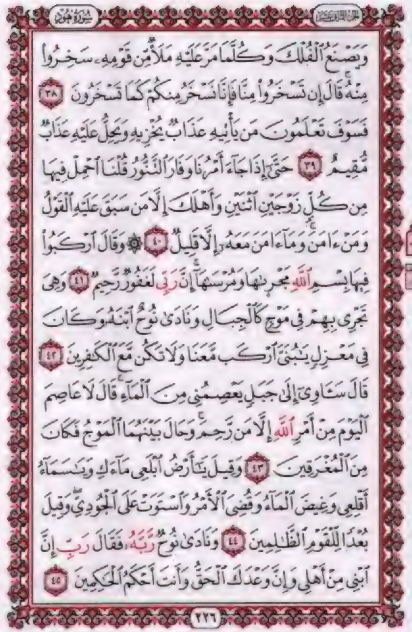 سُورَةُ هُودٍ
الجزء الثاني عشر
وَيَصْنَعُ ٱلْفُلْكَ وَكُلَّمَا مَرَّ عَلَيْهِ مَلَأٌ مِّن قَوْمِهِۦ سَخِرُوا۟
مِنْهُ ۚ قَالَ إِن تَسْخَرُوا۟ مِنَّا فَإِنَّا نَسْخَرُ مِنكُمْ كَمَا تَسْخَرُونَ ٣٨
فَسَوْفَ تَعْلَمُونَ مَن يَأْتِيهِ عَذَابٌ يُخْزِيهِ وَيَحِلُّ عَلَيْهِ عَذَابٌ
مُّقِيمٌ ٣٩ حَتَّىٰٓ إِذَا جَآءَ أَمْرُنَا وَفَارَ ٱلتَّنُّورُ قُلْنَا ٱحْمِلْ فِيهَا
مِن كُلٍّ زَوْجَيْنِ ٱثْنَيْنِ وَأَهْلَكَ إِلَّا مَن سَبَقَ عَلَيْهِ ٱلْقَوْلُ
وَمَنْ ءَامَنَ ۚ وَمَآ ءَامَنَ مَعَهُۥٓ إِلَّا قَلِيلٌ ٤٠ ۞ وَقَالَ ٱرْكَبُوا۟
فِيهَا بِسْمِ ٱللَّهِ مَجْر۪ىٰهَا وَمُرْسَىٰهَآ ۚ إِنَّ رَبِّى لَغَفُورٌ رَّحِيمٌ ٤١ وَهِىَ
تَجْرِى بِهِمْ فِى مَوْجٍ كَٱلْجِبَالِ وَنَادَىٰ نُوحٌ ٱبْنَهُۥ وَكَانَ
فِى مَعْزِلٍ يَٰبُنَىَّ ٱرْكَب مَّعَنَا وَلَا تَكُن مَّعَ ٱلْكَٰفِرِينَ ٤٢
قَالَ سَـَٔاوِىٓ إِلَىٰ جَبَلٍ يَعْصِمُنِى مِنَ ٱلْمَآءِ ۚ قَالَ لَا عَاصِمَ
ٱلْيَوْمَ مِنْ أَمْرِ ٱللَّهِ إِلَّا مَن رَّحِمَ ۚ وَحَالَ بَيْنَهُمَا ٱلْمَوْجُ فَكَانَ
مِنَ ٱلْمُغْرَقِينَ ٤٣ وَقِيلَ يَٰٓأَرْضُ ٱبْلَعِى مَآءَكِ وَيَٰسَمَآءُ
أَقْلِعِى وَغِيضَ ٱلْمَآءُ وَقُضِىَ ٱلْأَمْرُ وَٱسْتَوَتْ عَلَى ٱلْجُودِىِّ ۖ وَقِيلَ
بُعْدًا لِّلْقَوْمِ ٱلظَّٰلِمِينَ ٤٤ وَنَادَىٰ نُوحٌ رَّبَّهُۥ فَقَالَ رَبِّ إِنَّ
ٱبْنِى مِنْ أَهْلِى وَإِنَّ وَعْدَكَ ٱلْحَقُّ وَأَنتَ أَحْكَمُ ٱلْحَٰكِمِينَ ٤٥
٢٢٦